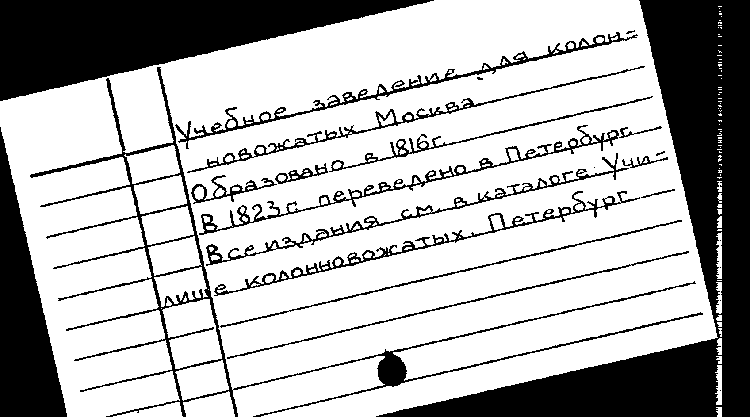 Учебное заведение для колон=
новожатых Москва
Образовано в 1816г.
В 1823г. переведено в Петербург
Все издания см. в каталоге: Учи=
лище колонновожатых. Петербург